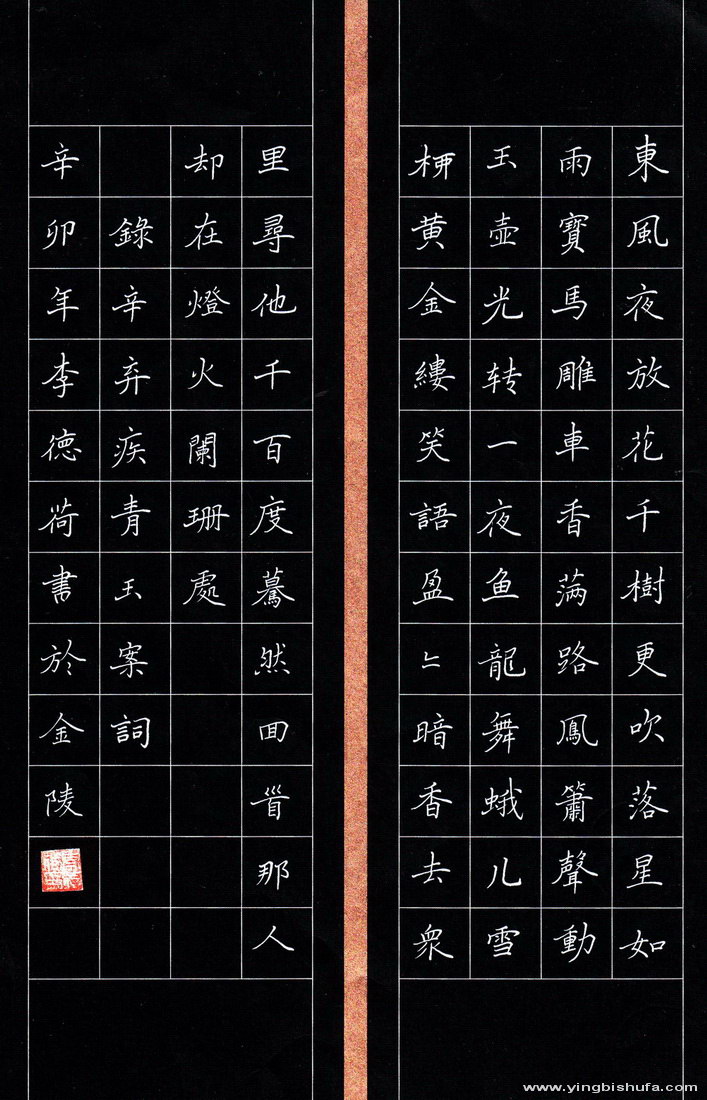 東風夜放花千樹更吹落星如
雨寶馬雕車香满路鳳簫聲動
玉壺光转一夜鱼龍舞蛾儿雪
柳黄金縷笑語盈〻暗香去衆
里尋他千百度驀然回首那人
却在燈火闌珊處
錄辛弃疾青玉案詞
辛卯年李德荷書於金陵
www.yingbishufa.com